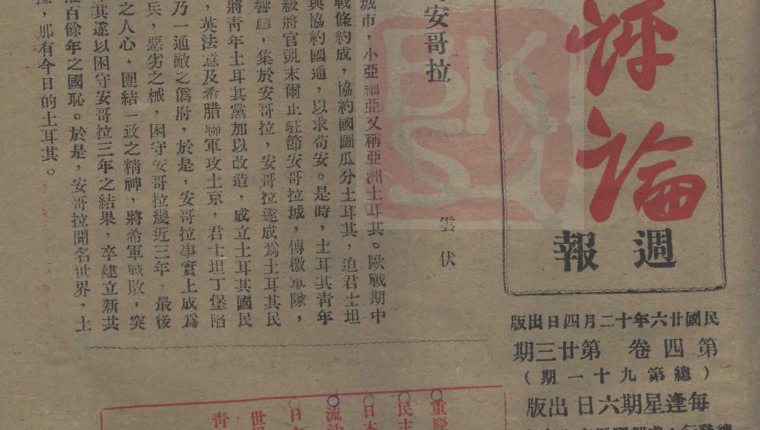 評論
週報
民國廿六年十二月四日出版
第四卷 第廿三期
(總第九十一期)
每逢星期六日出版
安哥拉
雲伏
城市,小亞細亞又稱亞洲土耳其。歐戰期中
戰條約成,協約國圖瓜分土耳其,迫君士坦
與協約國通,以求苟安。是時,土耳其青年
級將官凱末爾止駐節安哥拉城,傳檄軍隊,
響應,集於安哥拉,安哥拉遂成爲土耳其民
將青年土耳其黨加以改造,成立土耳其國民
,英法意及希腊聯軍攻土京,君士坦丁堡陷
乃一通敵之僞府,於是,安哥拉事實上成爲
兵,惡劣之械,困守安哥拉幾近三年,最後
之人心,團結一致之精神,將希軍戰敗,突
其遂以困守安哥拉三年之結果,卒建立新其
百餘年之國恥。於是,安哥拉聞名世界,土
,那有今日的土耳其。